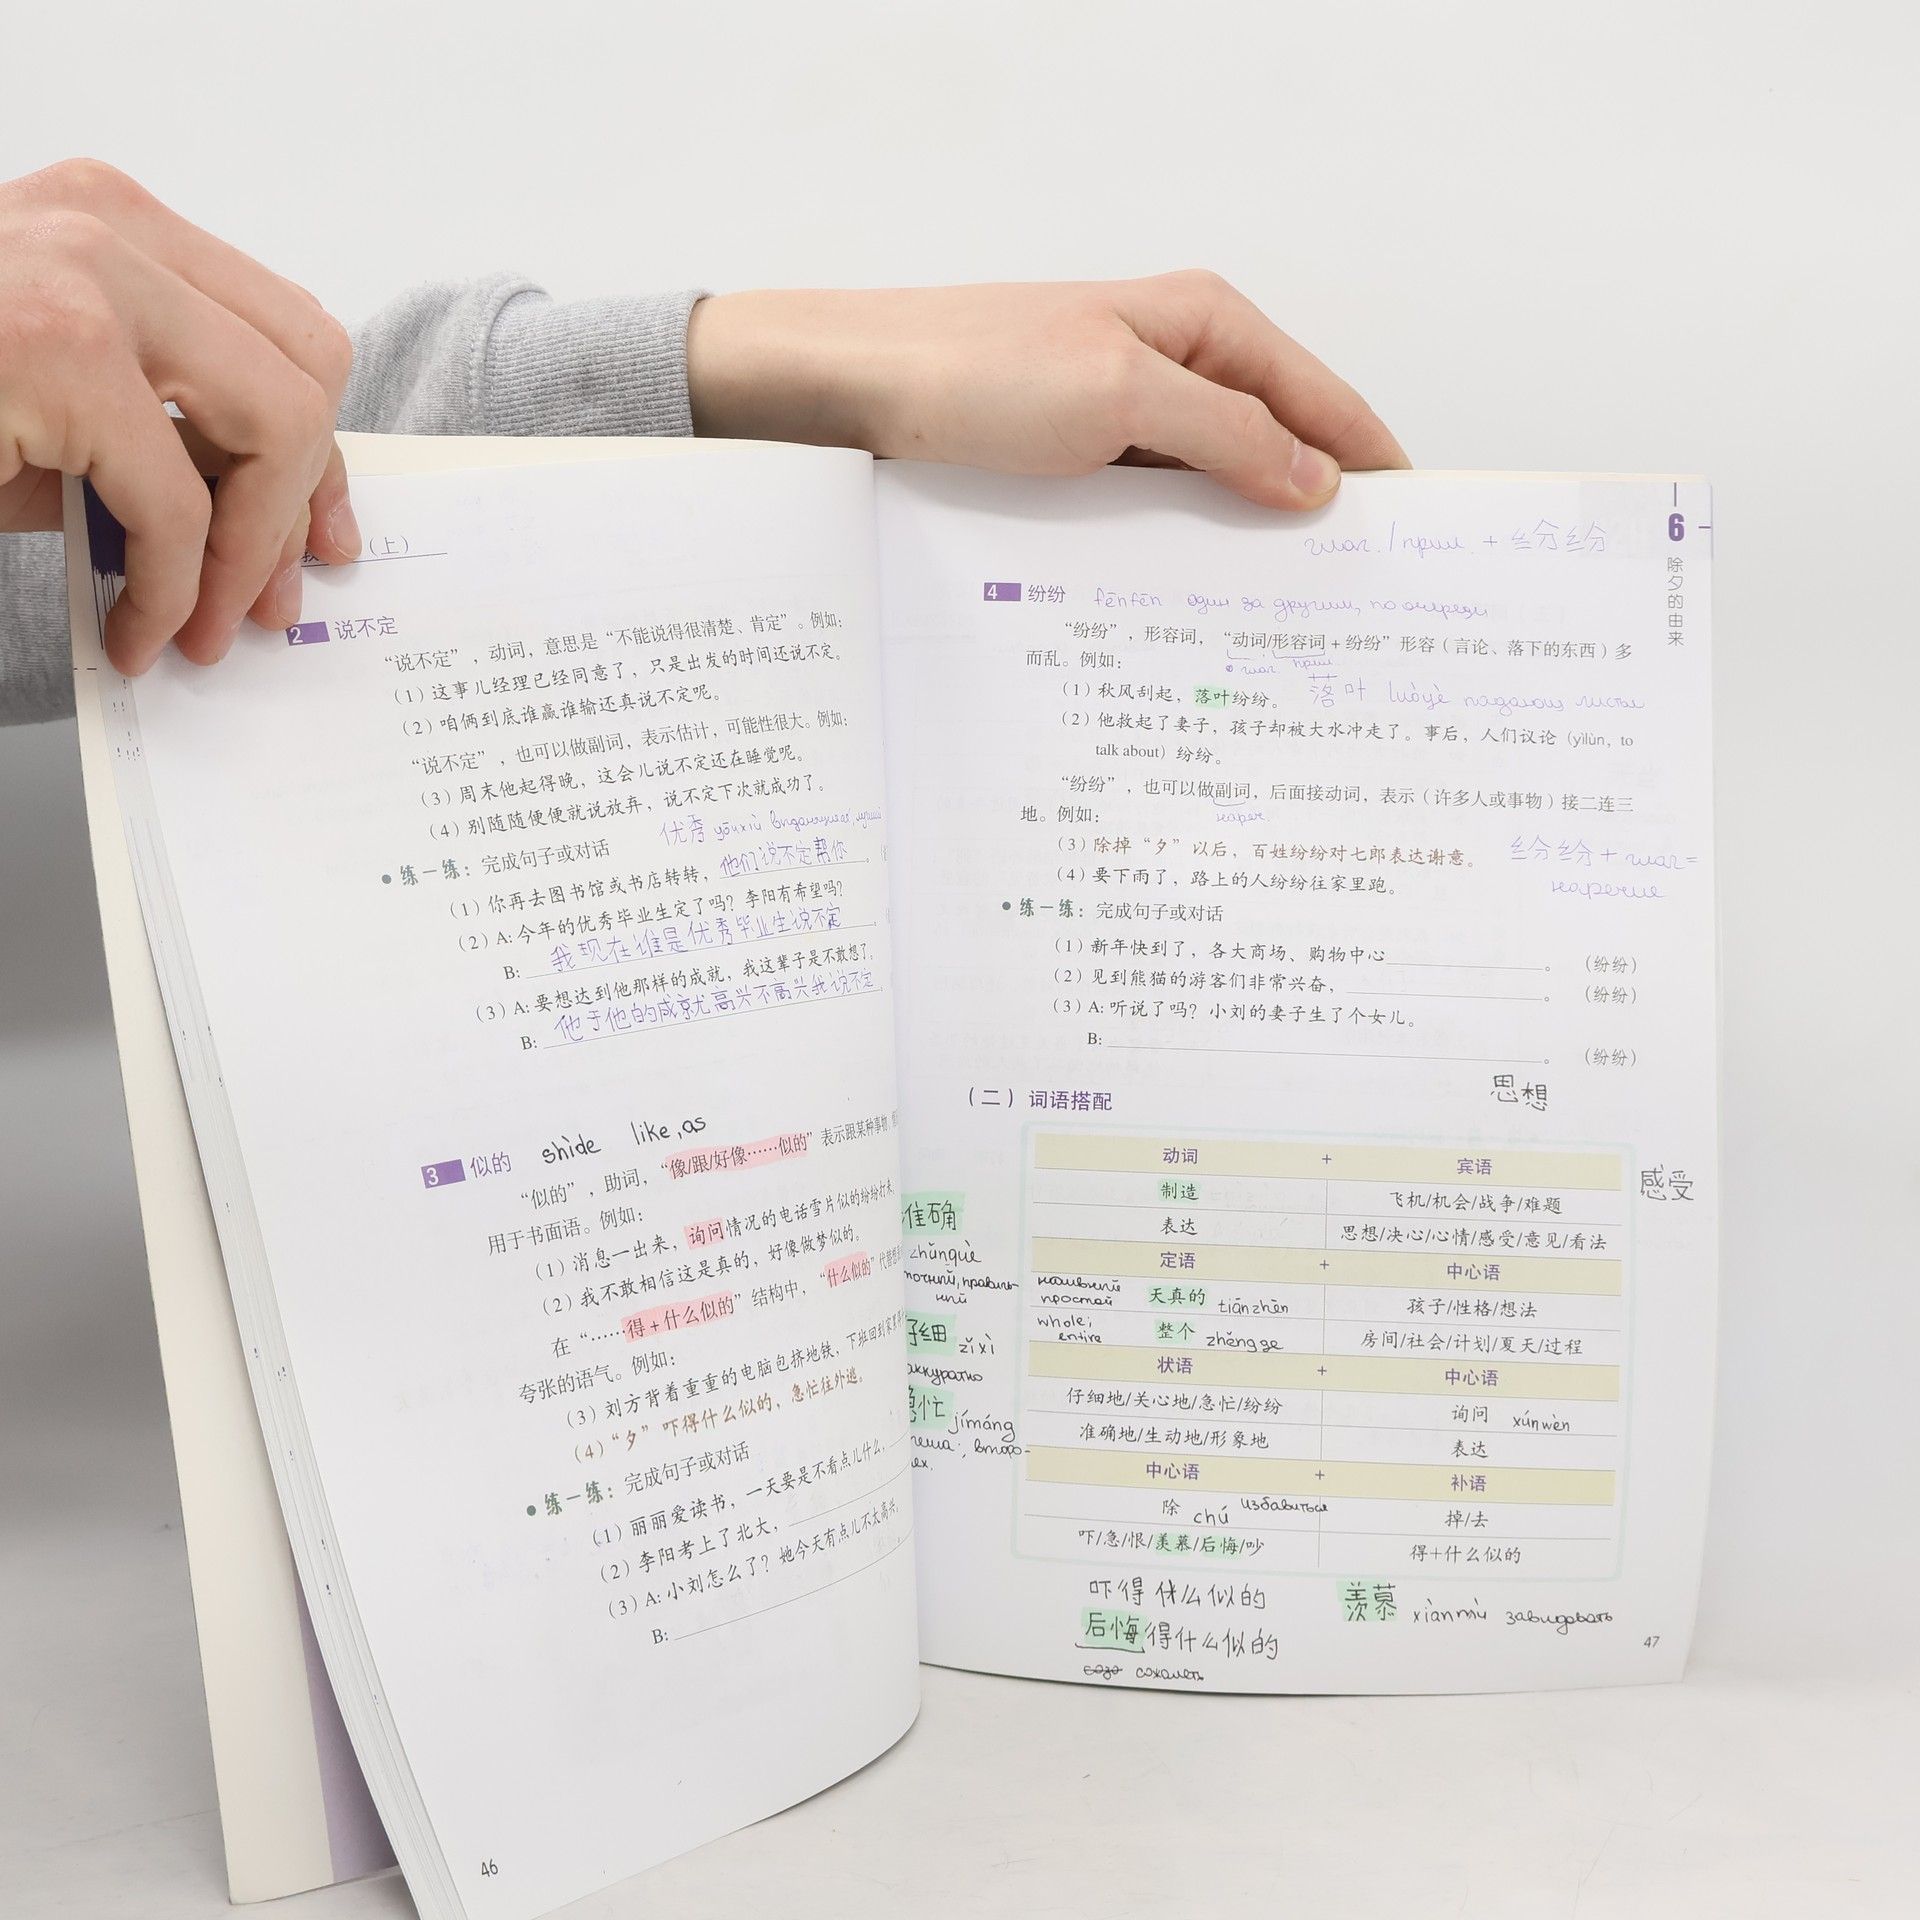 （上）
2 说不定
“说不定”，动词，意思是“不能说得很清楚、肯定”。例如：
（1）这事儿经理已经同意了，只是出发的时间还说不定。
（2）咱俩到底谁赢谁输还真说不定呢。
“说不定”，也可以做副词，表示估计，可能性很大。例如：
（3）周末他起得晚，这会儿说不定还在睡觉呢。
（4）别随随便便就说放弃，说不定下次就成功了。
优秀 yōuxiù
●练一练：完成句子或对话
（1）你再去图书馆或书店转转，他们说不定帮你。
（2）A: 今年的优秀毕业生定了吗？李阳有希望吗？
B: 我现在谁是优秀毕业生说不定
（3）A: 要想达到他那样的成就，我这辈子是不敢想了。
B: 他于他的成就高兴不高兴我说不定
shìde like, as
3 似的
“似的”，助词，“像/跟/好像……似的”表示跟某种事物
用于书面语。例如：
（1）消息一出来，询问情况的电话雪片似的纷纷打来。
（2）我不敢相信这是真的，好像做梦似的。
在“……得+什么似的”结构中，“什么似的”代替
夸张的语气。例如：
（3）刘方背着重重的电脑包挤地铁，下班回到家
（4）“夕”吓得什么似的，急忙往外逃。
●练一练：完成句子或对话
（1）丽丽爱读书，一天要是不看点儿什么，
（2）李阳考上了北大，
（3）A: 小刘怎么了？她今天有点儿不太高兴。
B:
46
6
除夕的由来
глаг. / прил. + 纷纷
4 纷纷 fēnfēn один за другим, по очереди
“纷纷”，形容词，“动词/形容词+纷纷”形容（言论、落下的东西）多
глаг. прил.
而乱。例如：
（1）秋风刮起，落叶纷纷。 落叶 luòyè падающ листья
（2）他救起了妻子，孩子却被大水冲走了。事后，人们议论（yìlùn, to
talk about）纷纷。
“纷纷”，也可以做副词，后面接动词，表示（许多人或事物）接二连三
нареч.
地。例如：
（3）除掉“夕”以后，百姓纷纷对七郎表达谢意。 纷纷 + глаг =
наречие
（4）要下雨了，路上的人纷纷往家里跑。
●练一练：完成句子或对话
（1）新年快到了，各大商场、购物中心 。（纷纷）
（2）见到熊猫的游客们非常兴奋， 。（纷纷）
（3）A: 听说了吗？小刘的妻子生了个女儿。
B: 。（纷纷）
思想
（二）词语搭配
动词 + 宾语
制造 飞机/机会/战争/难题
感受
表达 思想/决心/心情/感受/意见/看法
定语 + 中心语
наивный простой 天真的 tiānzhēn 孩子/性格/想法
whole; entire 整个 zhěngge 房间/社会/计划/夏天/过程
状语 + 中心语
仔细地/关心地/急忙/纷纷 询问 xúnwèn
准确地/生动地/形象地 表达
中心语 + 补语
除 chú избавиться 掉/去
吓/急/恨/羡慕/后悔/吵 得+什么似的
准确
zhǔnquè
точний, правиль-
ний
仔细 zǐxì
аккуратно
急忙 jímáng
吓得什么似的
后悔得什么似的
сожалеть
羡慕 xiànmù завидовать
47